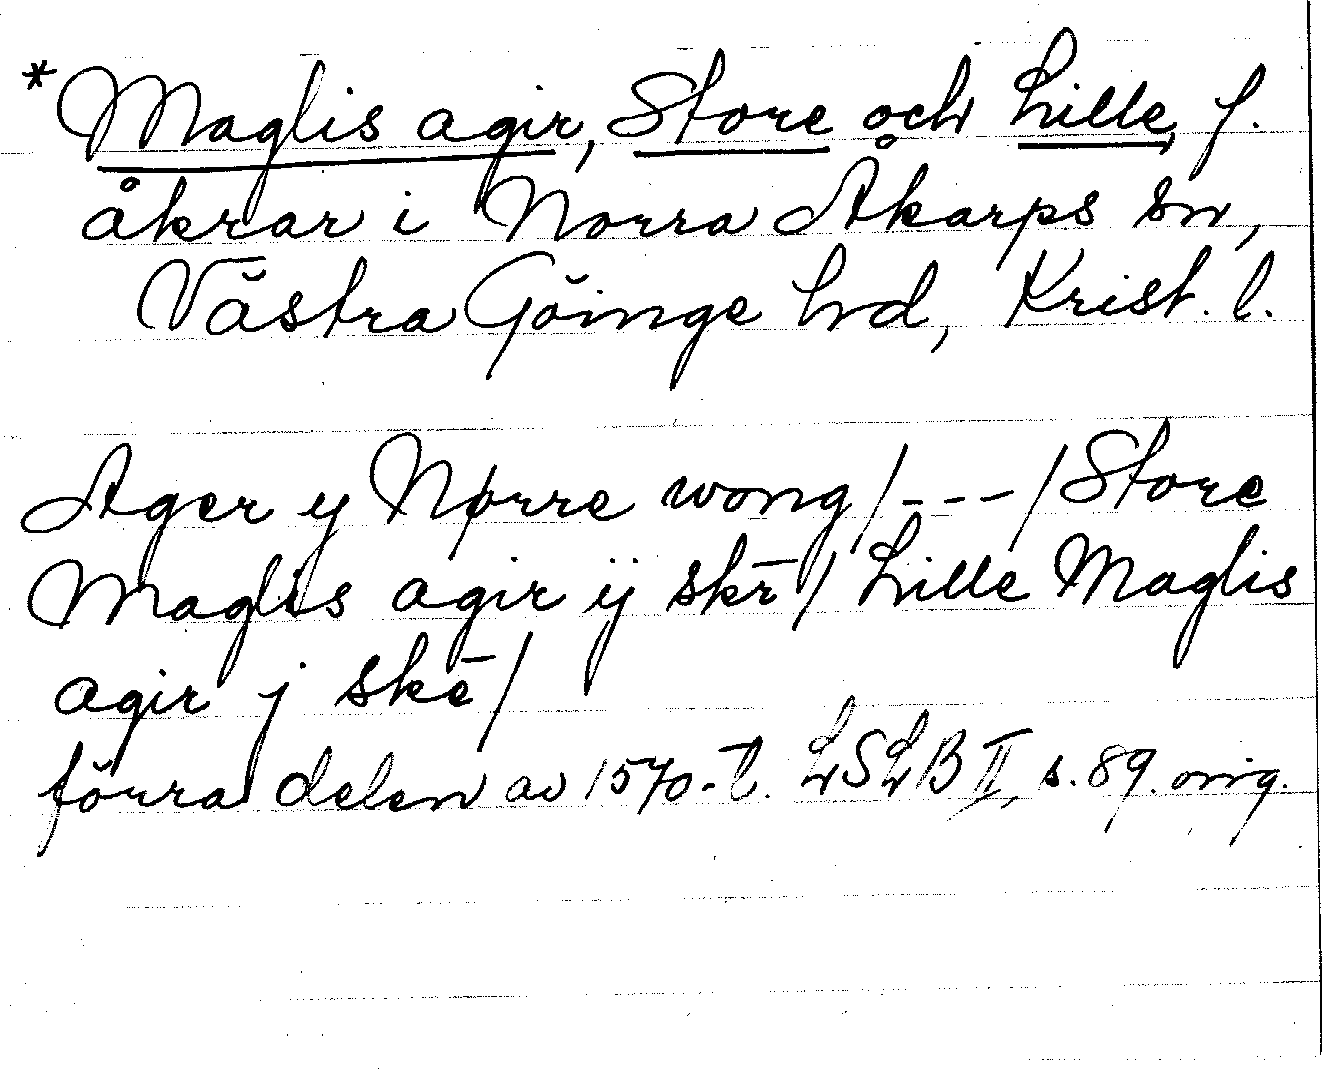 *Maglis agir, Store och Lille, f.
åkrar i Norra Åkarps sn,
Västra Göinge hd, Krist. l.
Ager y Nørre wong/---/Store
Maglis agir ij skē/ Lille Maglis
agir j skē/
förra delen av 1570-t. LSLB II, s. 89. orig.